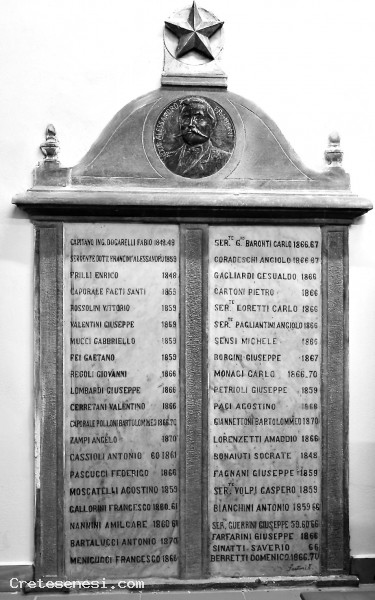 ALESSANDRO FRANCINI
CAPITANO ING. BUGARELLI FABIO 1848.49
SERGENTE DOTT. FRANCINI ALESSANDRO 1859
FRILLI ENRICO 1848
CAPORALE FAETI SANTI 1859
ROSSOLINI VITTORIO 1859
VALENTINI GIUSEPPE 1859
MUCCI GABBRIELLO 1859
FEI GAETANO 1859
REGOLI GIOVANNI 1866
LOMBARDI GIUSEPPE 1866
CERRETANI VALENTINO 1866
CAPORALE POLLONI BARTOLOMMEO 1866.70
ZAMPI ANGELO 1870
CASSIOLI ANTONIO 60 1861
PASCUCCI FEDERIGO 1866
MOSCATELLI AGOSTINO 1859
GALLORINI FRANCESCO 1860.61
NANNINI AMILCARE 1860 61
BARTALUCCI ANTONIO 1870
MENICUCCI FRANCESCO 1866
SERTE G. BARONTI CARLO 1866.67
CORADESCHI ANGIOLO 1866 67
GAGLIARDI GESUALDO 1866
CARTONI PIETRO 1866
SERTE LORETTI CARLO 1866
SERTE PAGLIANTINI ANGIOLO 1866
SENSI MICHELE 1866
BORGINI GIUSEPPE 1867
MONACI CARLO 1866.70
PETRIOLI GIUSEPPE 1859
PACI AGOSTINO 1866
GIANNETTONI BARTOLOMMEO 1870
LORENZETTI AMADDIO 1866
BONAIUTI SOCRATE 1848
FAGNANI GIUSEPPE 1859
SERTE VOLPI GASPERO 1859
BIANCHINI ANTONIO 1859 66
SER. GUERRINI GIUSEPPE 59.60 66
FARFARINI GIUSEPPE 1866
SINATTI SAVERIO 66
BERRETTI DOMENICO 1866.70
© Cretesenesi.com